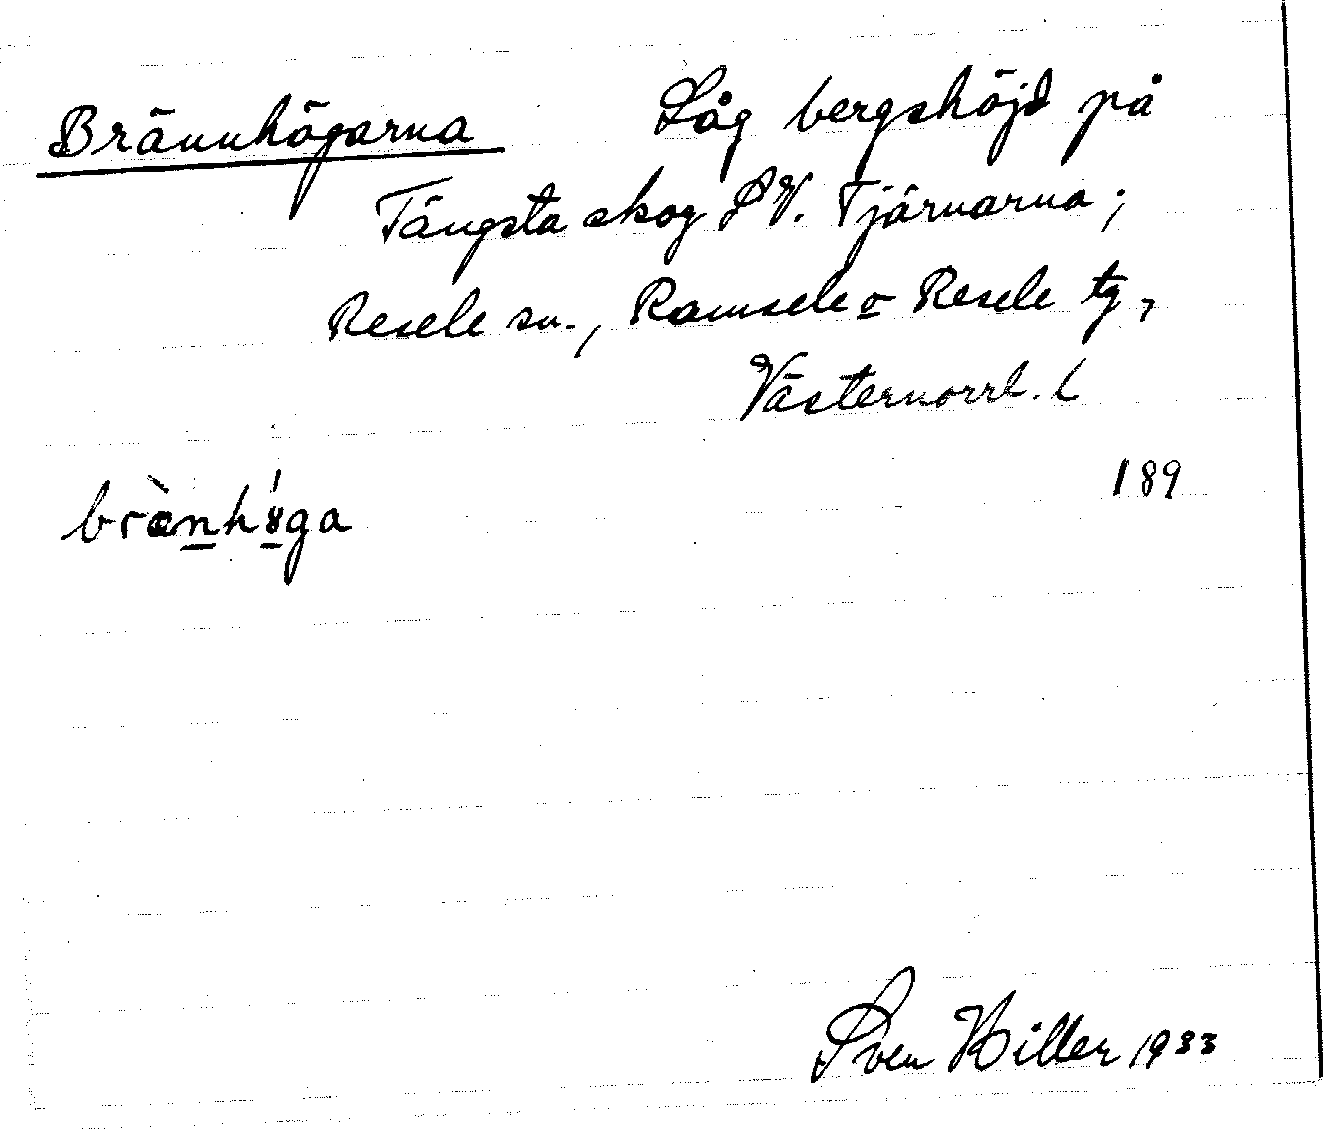 Brännhögarna Låg bergshöjd på
Tängsta skog SV. Tjärnarna;
Resele sn., Ramsele o Resele tg,
Västernorrl. l
189
brænhöga
Sven Hiller 1933